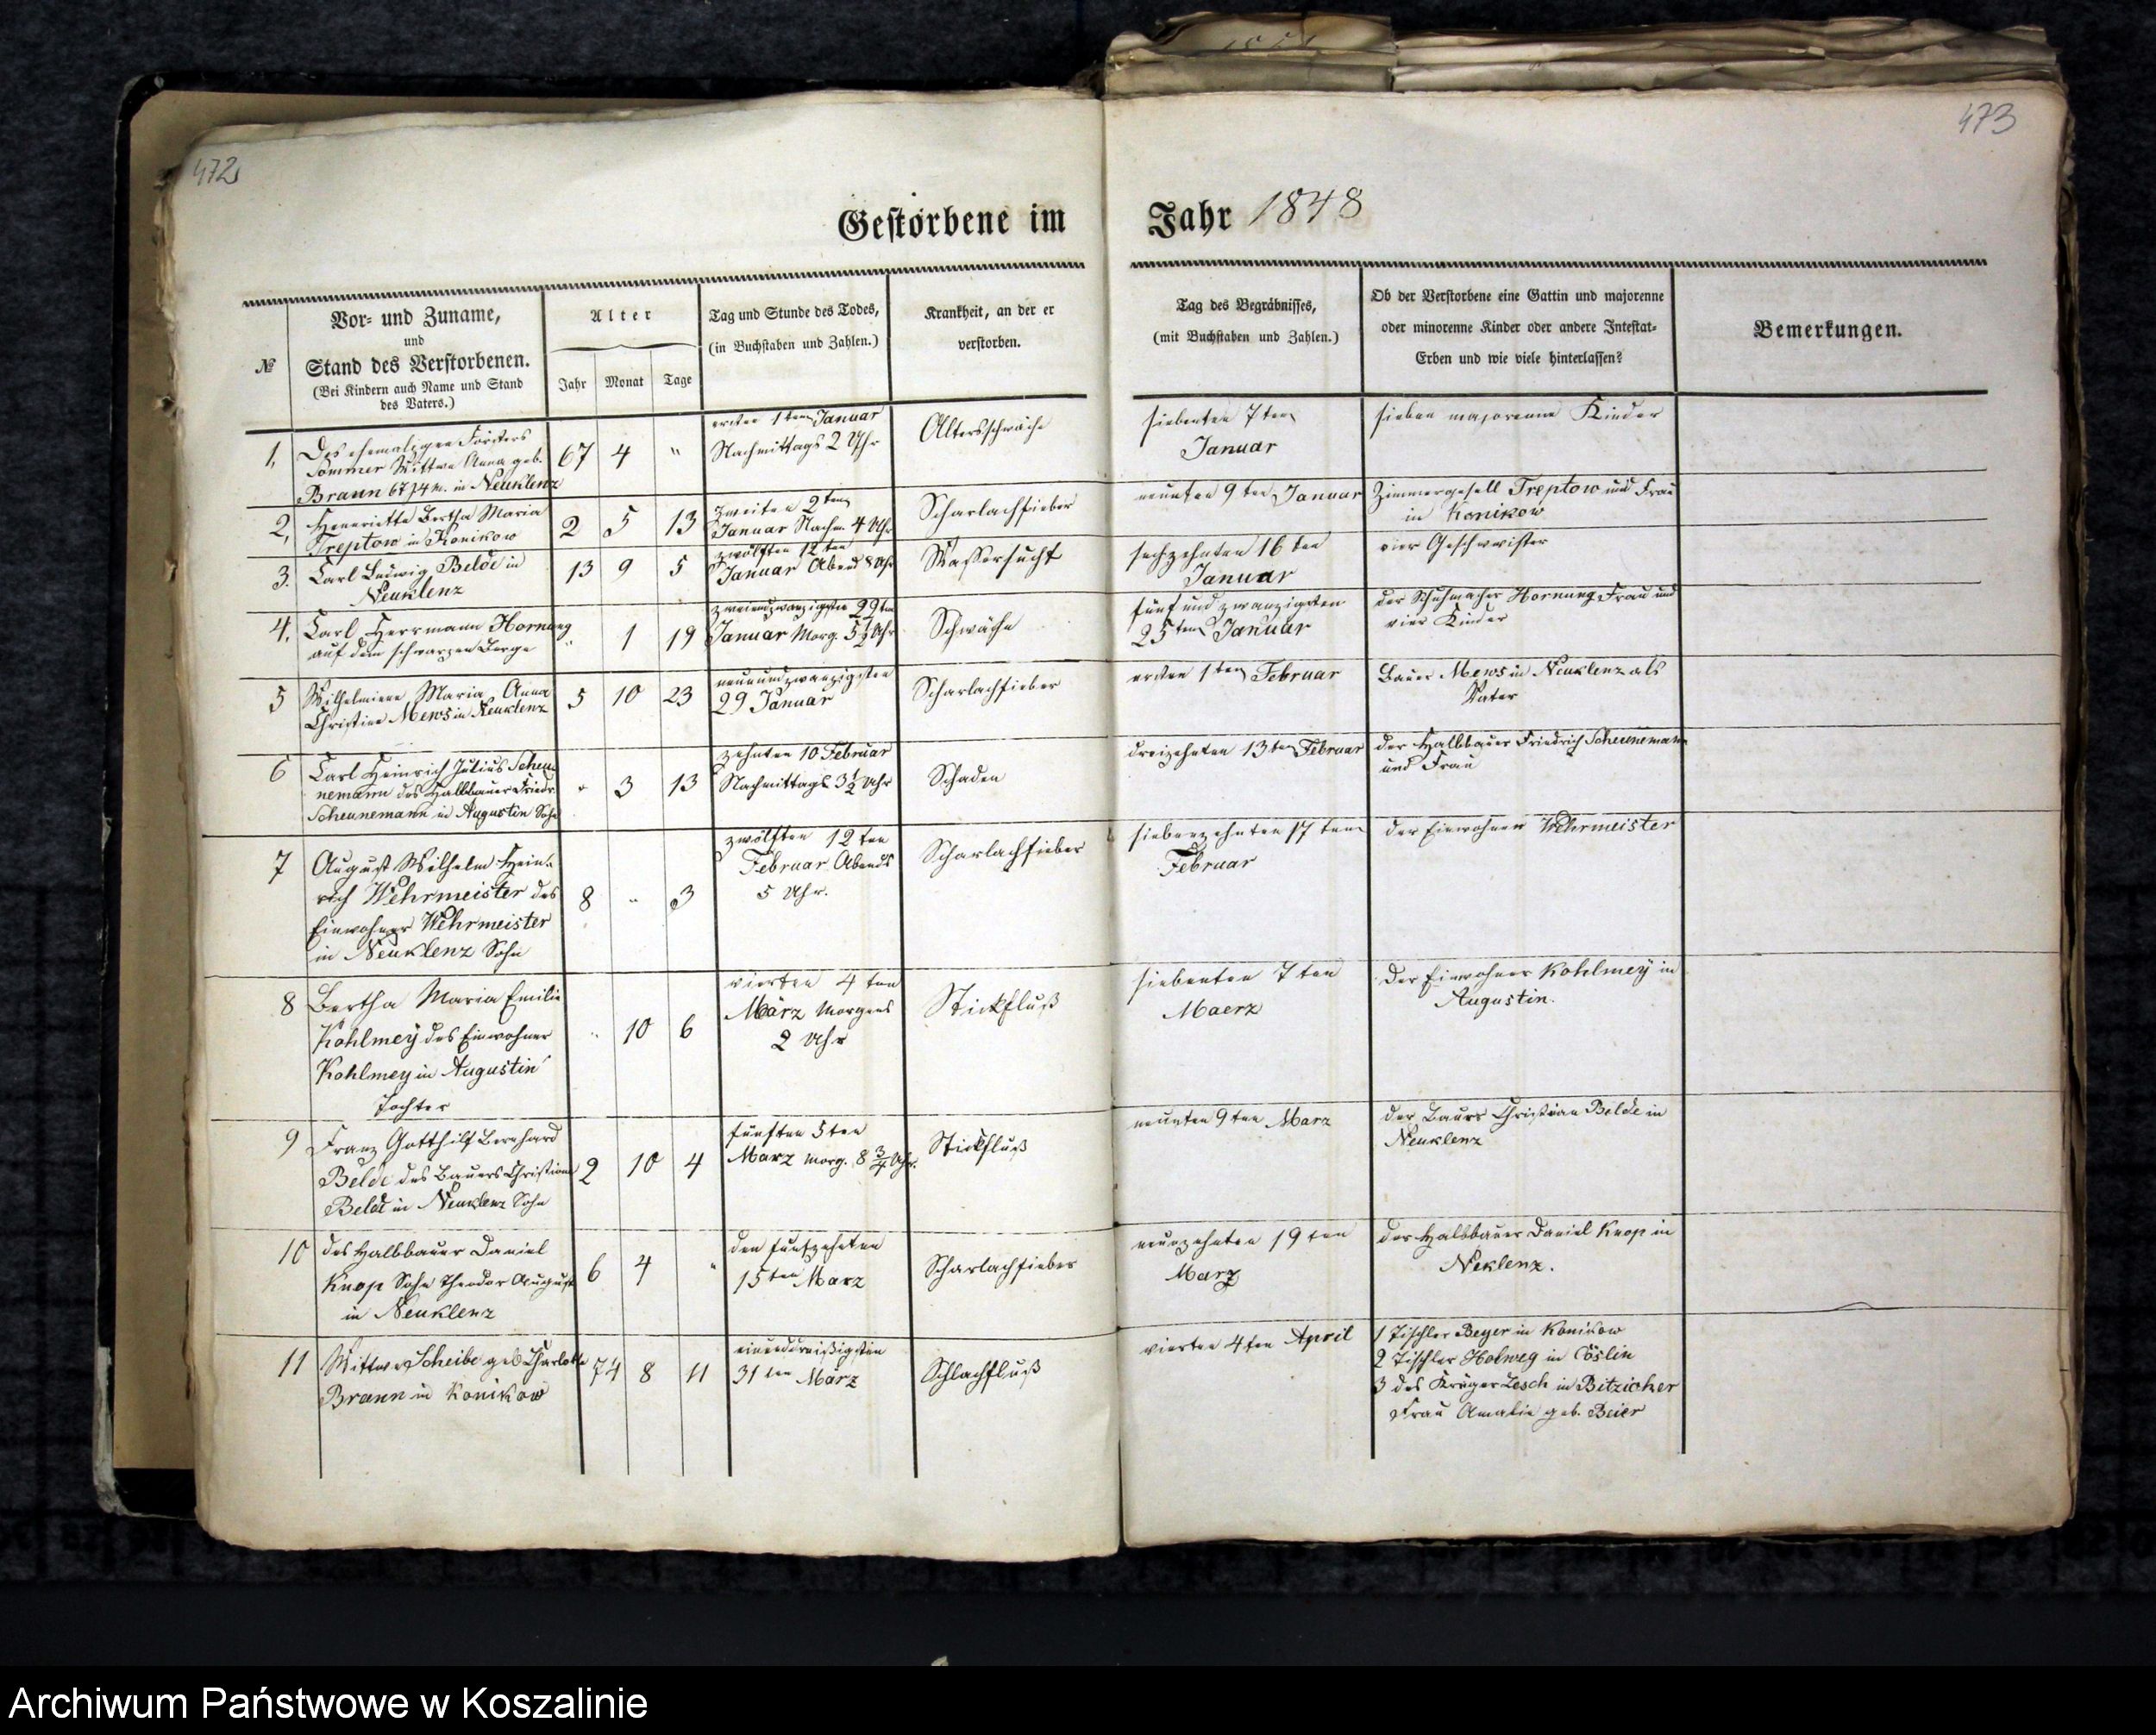 472
473
Gestorbene im Jahr 1848
№
Vor- und Zuname,
und
Stand des Verstorbenen.
(Bei Kindern auch Name und Stand
des Vaters.)
Alter
Jahr Monat Tage
Tag und Stunde des Todes,
(in Buchstaben und Zahlen.)
Krankheit, an der er
verstorben.
Tag des Begräbnisses,
(mit Buchstaben und Zahlen.)
Ob der Verstorbene eine Gattin und majorenne
oder minorenne Kinder oder andere Intestat-
Erben und wie viele hinterlassen?
Bemerkungen.
1,
Des ehemaligen Försters
Sommer Wittwe Anna geb.
Braun 67 J 4 M. in Neuklenz
67 4 "
ersten 1ten Januar
Nachmittags 2 Uhr
Altersschwäche
siebenten 7ten
Januar
sieben majorenne Kinder
2,
Henriette Bertha Maria
Treptow in Konikow
2 5 13
zweiten 2ten
Januar Nachm. 4 Uhr
Scharlachfieber
neunten 9ten Januar
Zimmergesell Treptow und Frau
in Konikow
3.
Carl Ludwig Belde in
Neuklenz
13 9 5
zwölften 12ten
Januar Abend 8 Uhr
Wassersucht
sechzehnten 16ten
Januar
vier Geschwister
4,
Carl Herrmann Hornung
auf dem schwarzen Berge
" 1 19
Januar Morg. 5½ Uhr
Schwäche
fünf und zwanzigsten
25ten Januar
der Schuhmacher Hornung Frau und
vier Kinder
5
Wilhelmiene Maria Anna
Christine Mews in Neuklenz
5 10 23
neunundzwanzigsten
29 Januar
Scharlachfieber
ersten 1ten Februar
Bauer Mews in Neuklenz als
Vater
6
Carl Heinrich Julius Scheu-
nemann des Halbbauer Friedr.
Scheunemann in Augustin Sohn
" 3 13
zehnten 10 Februar
Nachmittags 3½ Uhr
Schaden
dreizehnten 13ten Februar
der Halbbauer Friedrich Scheunemann
und Frau
7
August Wilhelm Hein-
rich Wehrmeister des
Einwohner Wehrmeister
in Neuklenz Sohn
8 " 3
zwölften 12ten
Februar Abends
5 Uhr.
Scharlachfieber
siebenzehnten 17ten
Februar
der Einwohner Wehrmeister
8
Bertha Maria Emilie
Kohlmey des Einwohner
Kohlmey in Augustin
Tochter
" 10 6
vierten 4ten
März Morgens
2 Uhr
Stickfluß
siebenten 7ten
Maerz
Der Einwohner Kohlmey in
Augustin.
9
Franz Gotthilf Bernhard
Belde des Bauers Christian
Belde in Neuklenz Sohn
2 10 4
fünften 5ten
März Morg. 8¾ Uhr.
Stickfluß
neunten 9ten März
der Bauer Christian Belde in
Neuklenz
10
des Halbbauer Daniel
Knop Sohn Theodor August
in Neuklenz
6 4 "
den funfzehnten
15ten März
Scharlachfieber
neunzehnten 19ten
März
der Halbbauer Daniel Knop in
Neklenz.
11
Wittwe Scheibe geb Charlotte
Brann in Konikow
74 8 11
einunddreißigsten
31ten März
Schlachfluß
vierten 4ten April
1 Tischler Beyer in Konikow
2 Tischler Holweg in Cöslin
3 des Krüger Lesch in Bitzicker
Frau Amalie geb. Beier
Archiwum Państwowe w Koszalinie